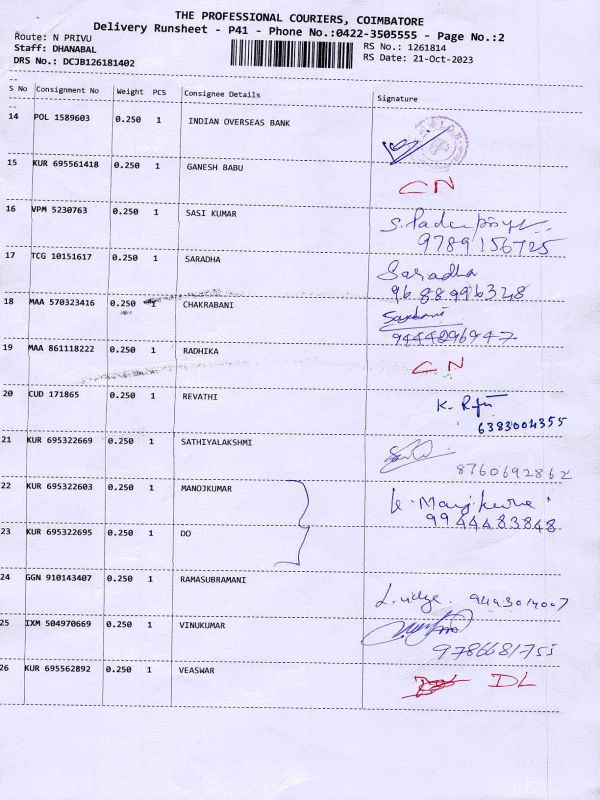 THE PROFESSIONAL COURIERS, COIMBATORE
Delivery Runsheet - P41 - Phone No.:0422-3505555 - Page No.:2
Route: N PRIVU
RS No.: 1261814
Staff: DHANABAL
RS Date: 21-Oct-2023
DRS No.: DCJB126181402
S No Consignment No Weight PCS Consignee Details Signature
14 POL 1589603 0.250 1 INDIAN OVERSEAS BANK
15 KUR 695561418 0.250 1 GANESH BABU CN
16 VPM 5230763 0.250 1 SASI KUMAR
9789156725
17 TCG 10151617 0.250 1 SARADHA Saradha
9688996328
18 MAA 570323416 0.250 1 CHAKRABANI
9444296947
19 MAA 861118222 0.250 1 RADHIKA C.N
20 CUD 171865 0.250 1 REVATHI
6383004355
21 KUR 695322669 0.250 1 SATHIYALAKSHMI
8760692862
22 KUR 695322603 0.250 1 MANOJKUMAR
9944483848
23 KUR 695322695 0.250 1 DO
24 GGN 910143407 0.250 1 RAMASUBRAMANI
25 IXM 504970669 0.250 1 VINUKUMAR
9786681755
26 KUR 695562892 0.250 1 VEASWAR DL